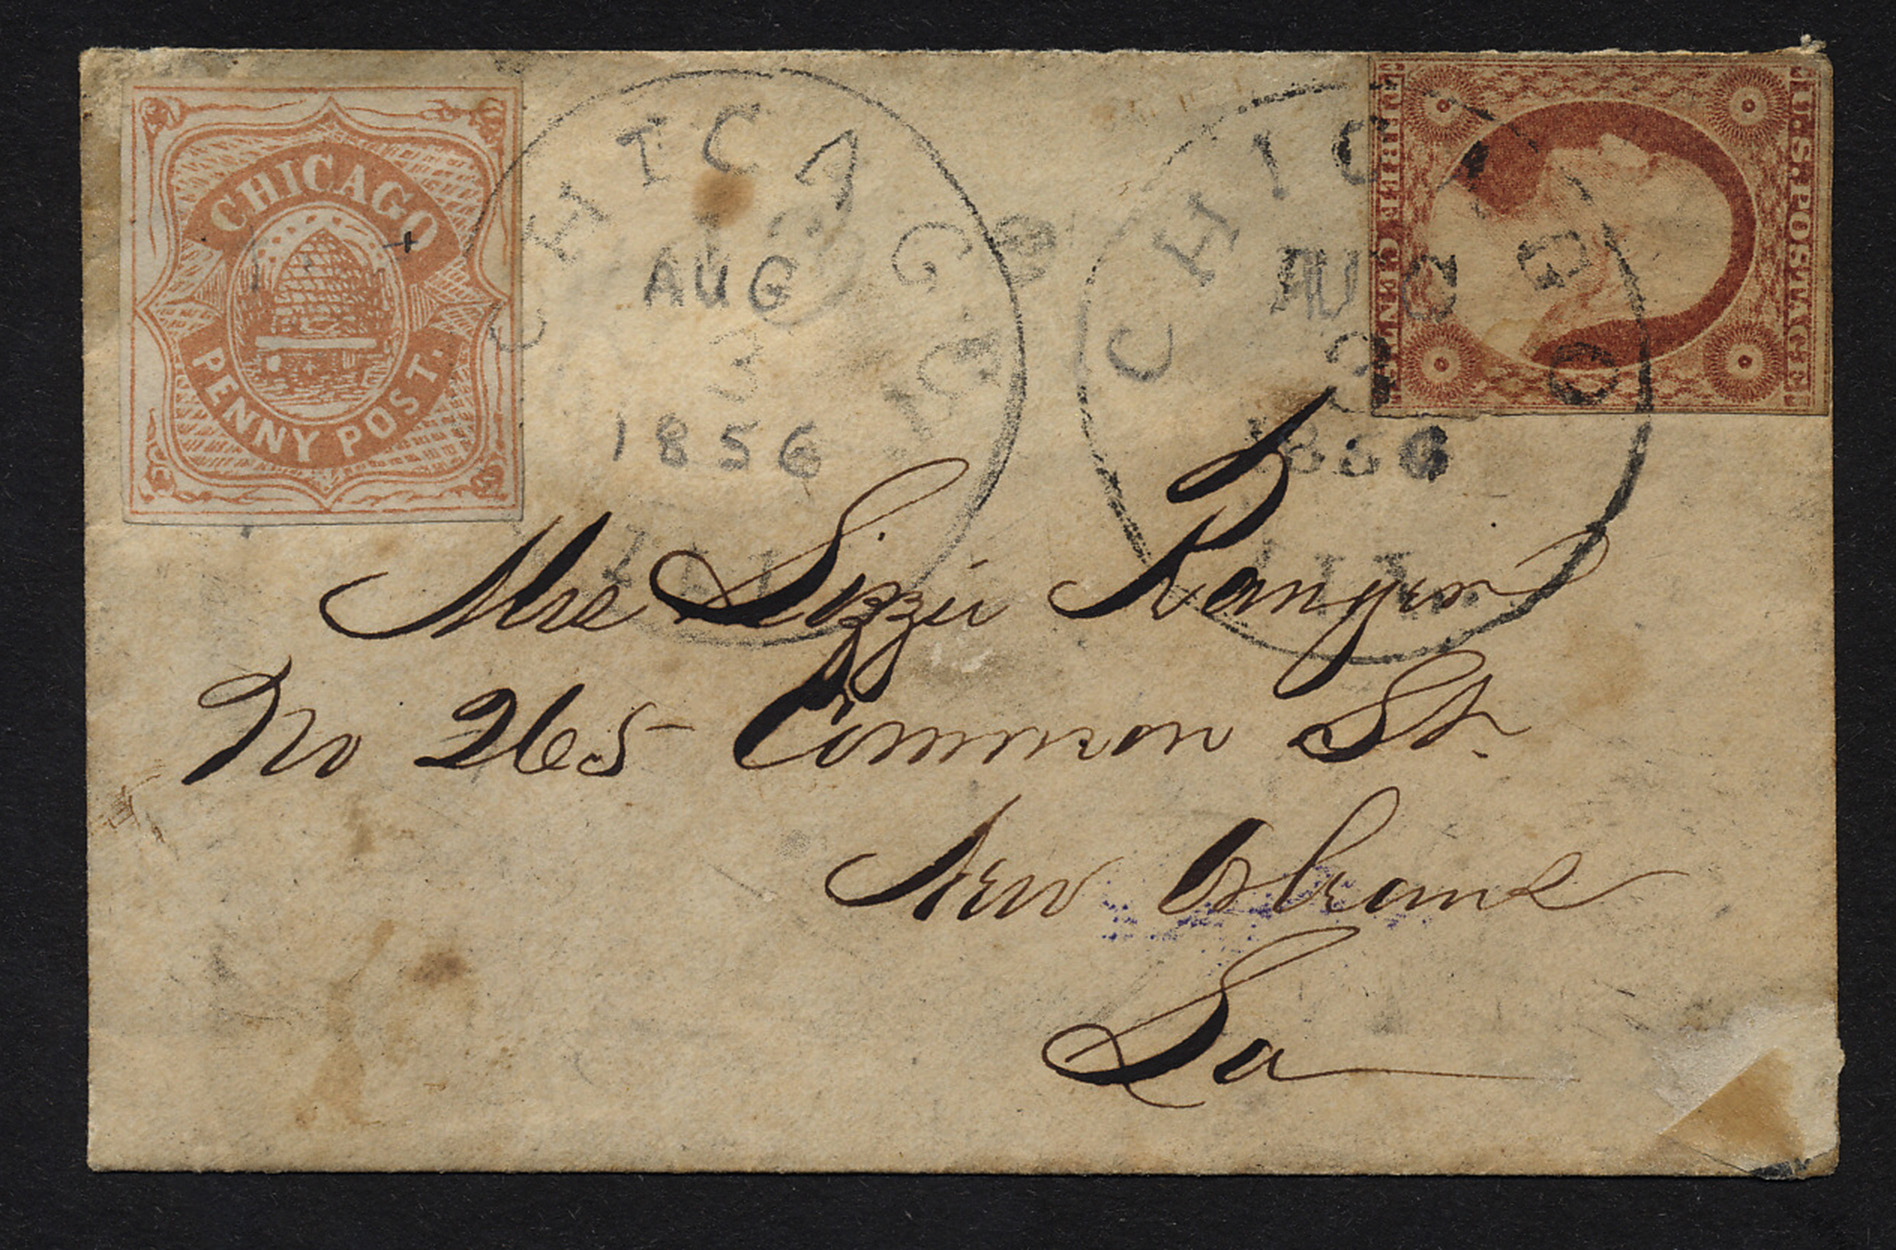 CHICAGO
PENNY POST.
CHICAGO
AUG
3
1856
ILL
CHICAGO
AUG
3
1856
ILL.
U.S. POSTAGE
THREE CENTS
Mrs Lizzie Ranger
No 265 Common St.
New Orleans
La